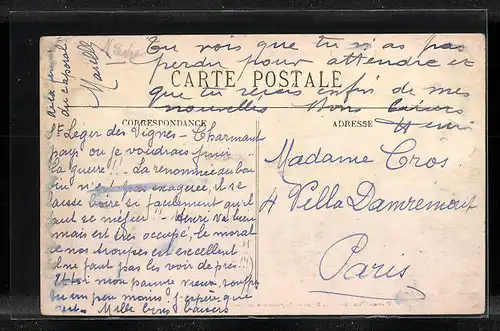 Tu vois que tu n'as pas
perdu pour attendre et
que tu reçois enfin de mes
nouvelles Bons baisers
Henri
CARTE POSTALE
CORRESPONDANCE
ADRESSE
St Léger des Vignes - Charmant
pays ou je voudrais finir
la guerre!! - La renommée du bon
vin n'est pas exagérée, il se
laisse boire si facilement qu'il
faut se méfier!! - Henri va bien
mais est très occupé, le moral
de nos troupes est excellent
il ne faut pas les voir de près!!!)
Et toi mon pauvre vieux, souffres
tu un peu moins j'espère que
Mille bons baisers
Marcelle
du caporal
Madame Cros
4 Villa Damrémont
Paris